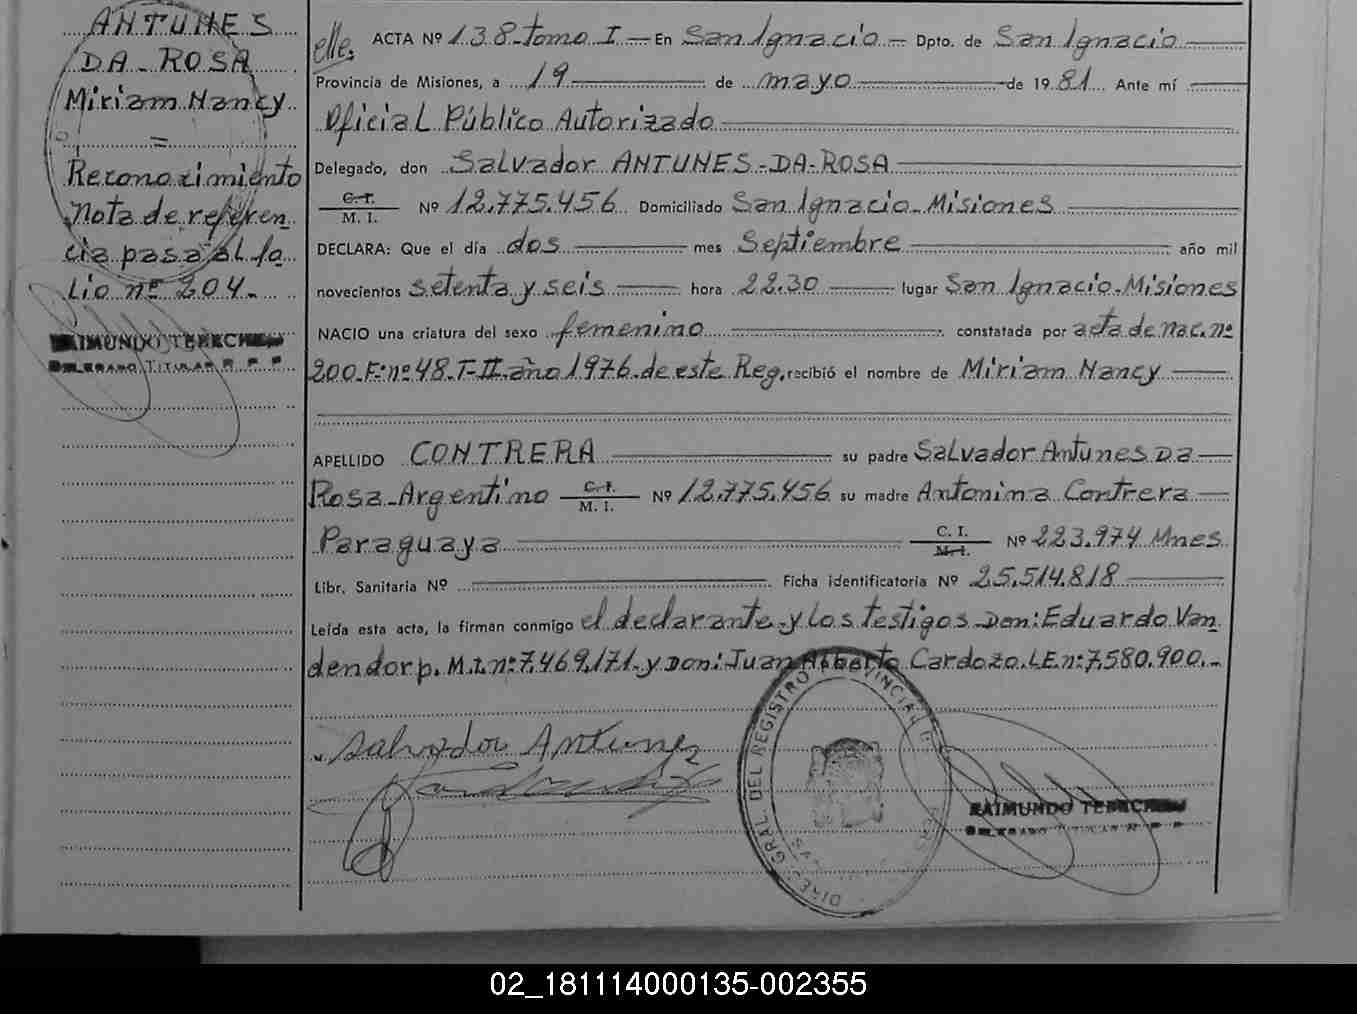 ANTUNES
DA-ROSA
Miriam Nancy.
=
Reconocimiento
Nota de referen_
cia pasa al fo_
lio nº 204.-
RAIMUNDO
DELEGADO TITULAR R. P. P.
elle.
ACTA Nº 138-tomo I.- En San Ignacio.- Dpto. de San Ignacio
Provincia de Misiones, a 19 de mayo de 1981. Ante mí
Oficial Público Autorizado
Delegado, don Salvador ANTUNES-DA-ROSA
C. I.
M. I. Nº 12.775.456 Domiciliado San Ignacio-Misiones
DECLARA: Que el día dos mes Septiembre año mil
novecientos setenta y seis hora 22.30 lugar San Ignacio-Misiones
NACIO una criatura del sexo femenino constatada por acta de nac. nº
200.Fº nº 48.T-II.año 1976.de este Reg. recibió el nombre de Miriam Nancy
APELLIDO CONTRERA su padre Salvador Antunes Da
Rosa-Argentino C. I. M. I. Nº 12.775.456 su madre Antonina Contrera
Paraguaya C. I. M. I. Nº 223.974 Mnes.
Libr. Sanitaria Nº Ficha identificatoria Nº 25.514.818
Leída esta acta, la firman conmigo el declarante-y los testigos-Don: Eduardo Van_
dendorp. M.I. nº: 7.469.171.-y Don: Juan Alberto Cardozo. L.E. nº: 7.580.900.-
Salvador Antunes
DIREC. GRAL. DEL REGISTRO PROVINCIAL
RAIMUNDO
DELEGADO TITULAR R. P. P.
02_181114000135-002355